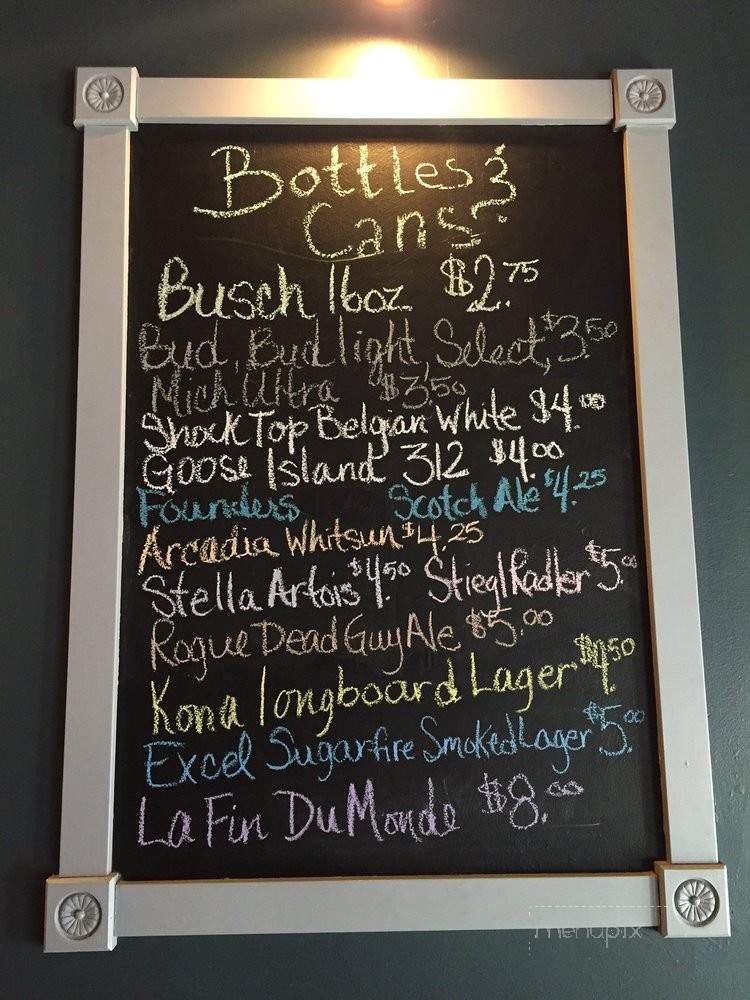 Bottles &
Cans
Busch 16oz $2.75
Bud, Bud light, Select, $3.50
Mich Ultra $3.50
Shock Top Belgian White $4.00
Goose Island 312 $4.00
Founders Scotch Ale $4.25
Arcadia Whitsun $4.25
Stella Artois $4.50 Stiegl Radler $5.00
Rogue Dead Guy Ale $5.00
Kona longboard Lager $4.50
Excel Sugarfire Smoked Lager $5.00
La Fin Du Monde $8.00
menupix